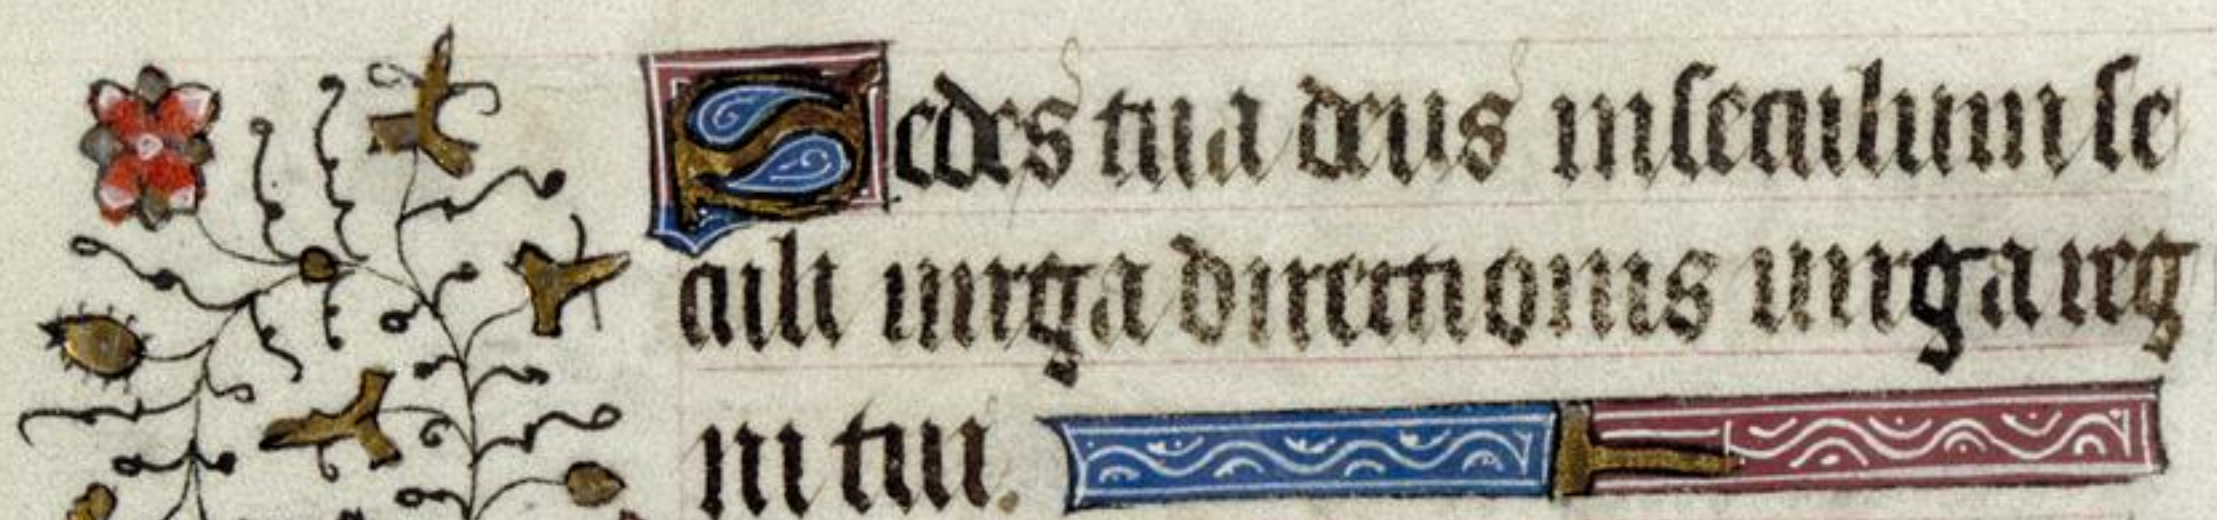 Sedes tua deus in seculum se
culi uirga directionis uirga reg
ni tui.